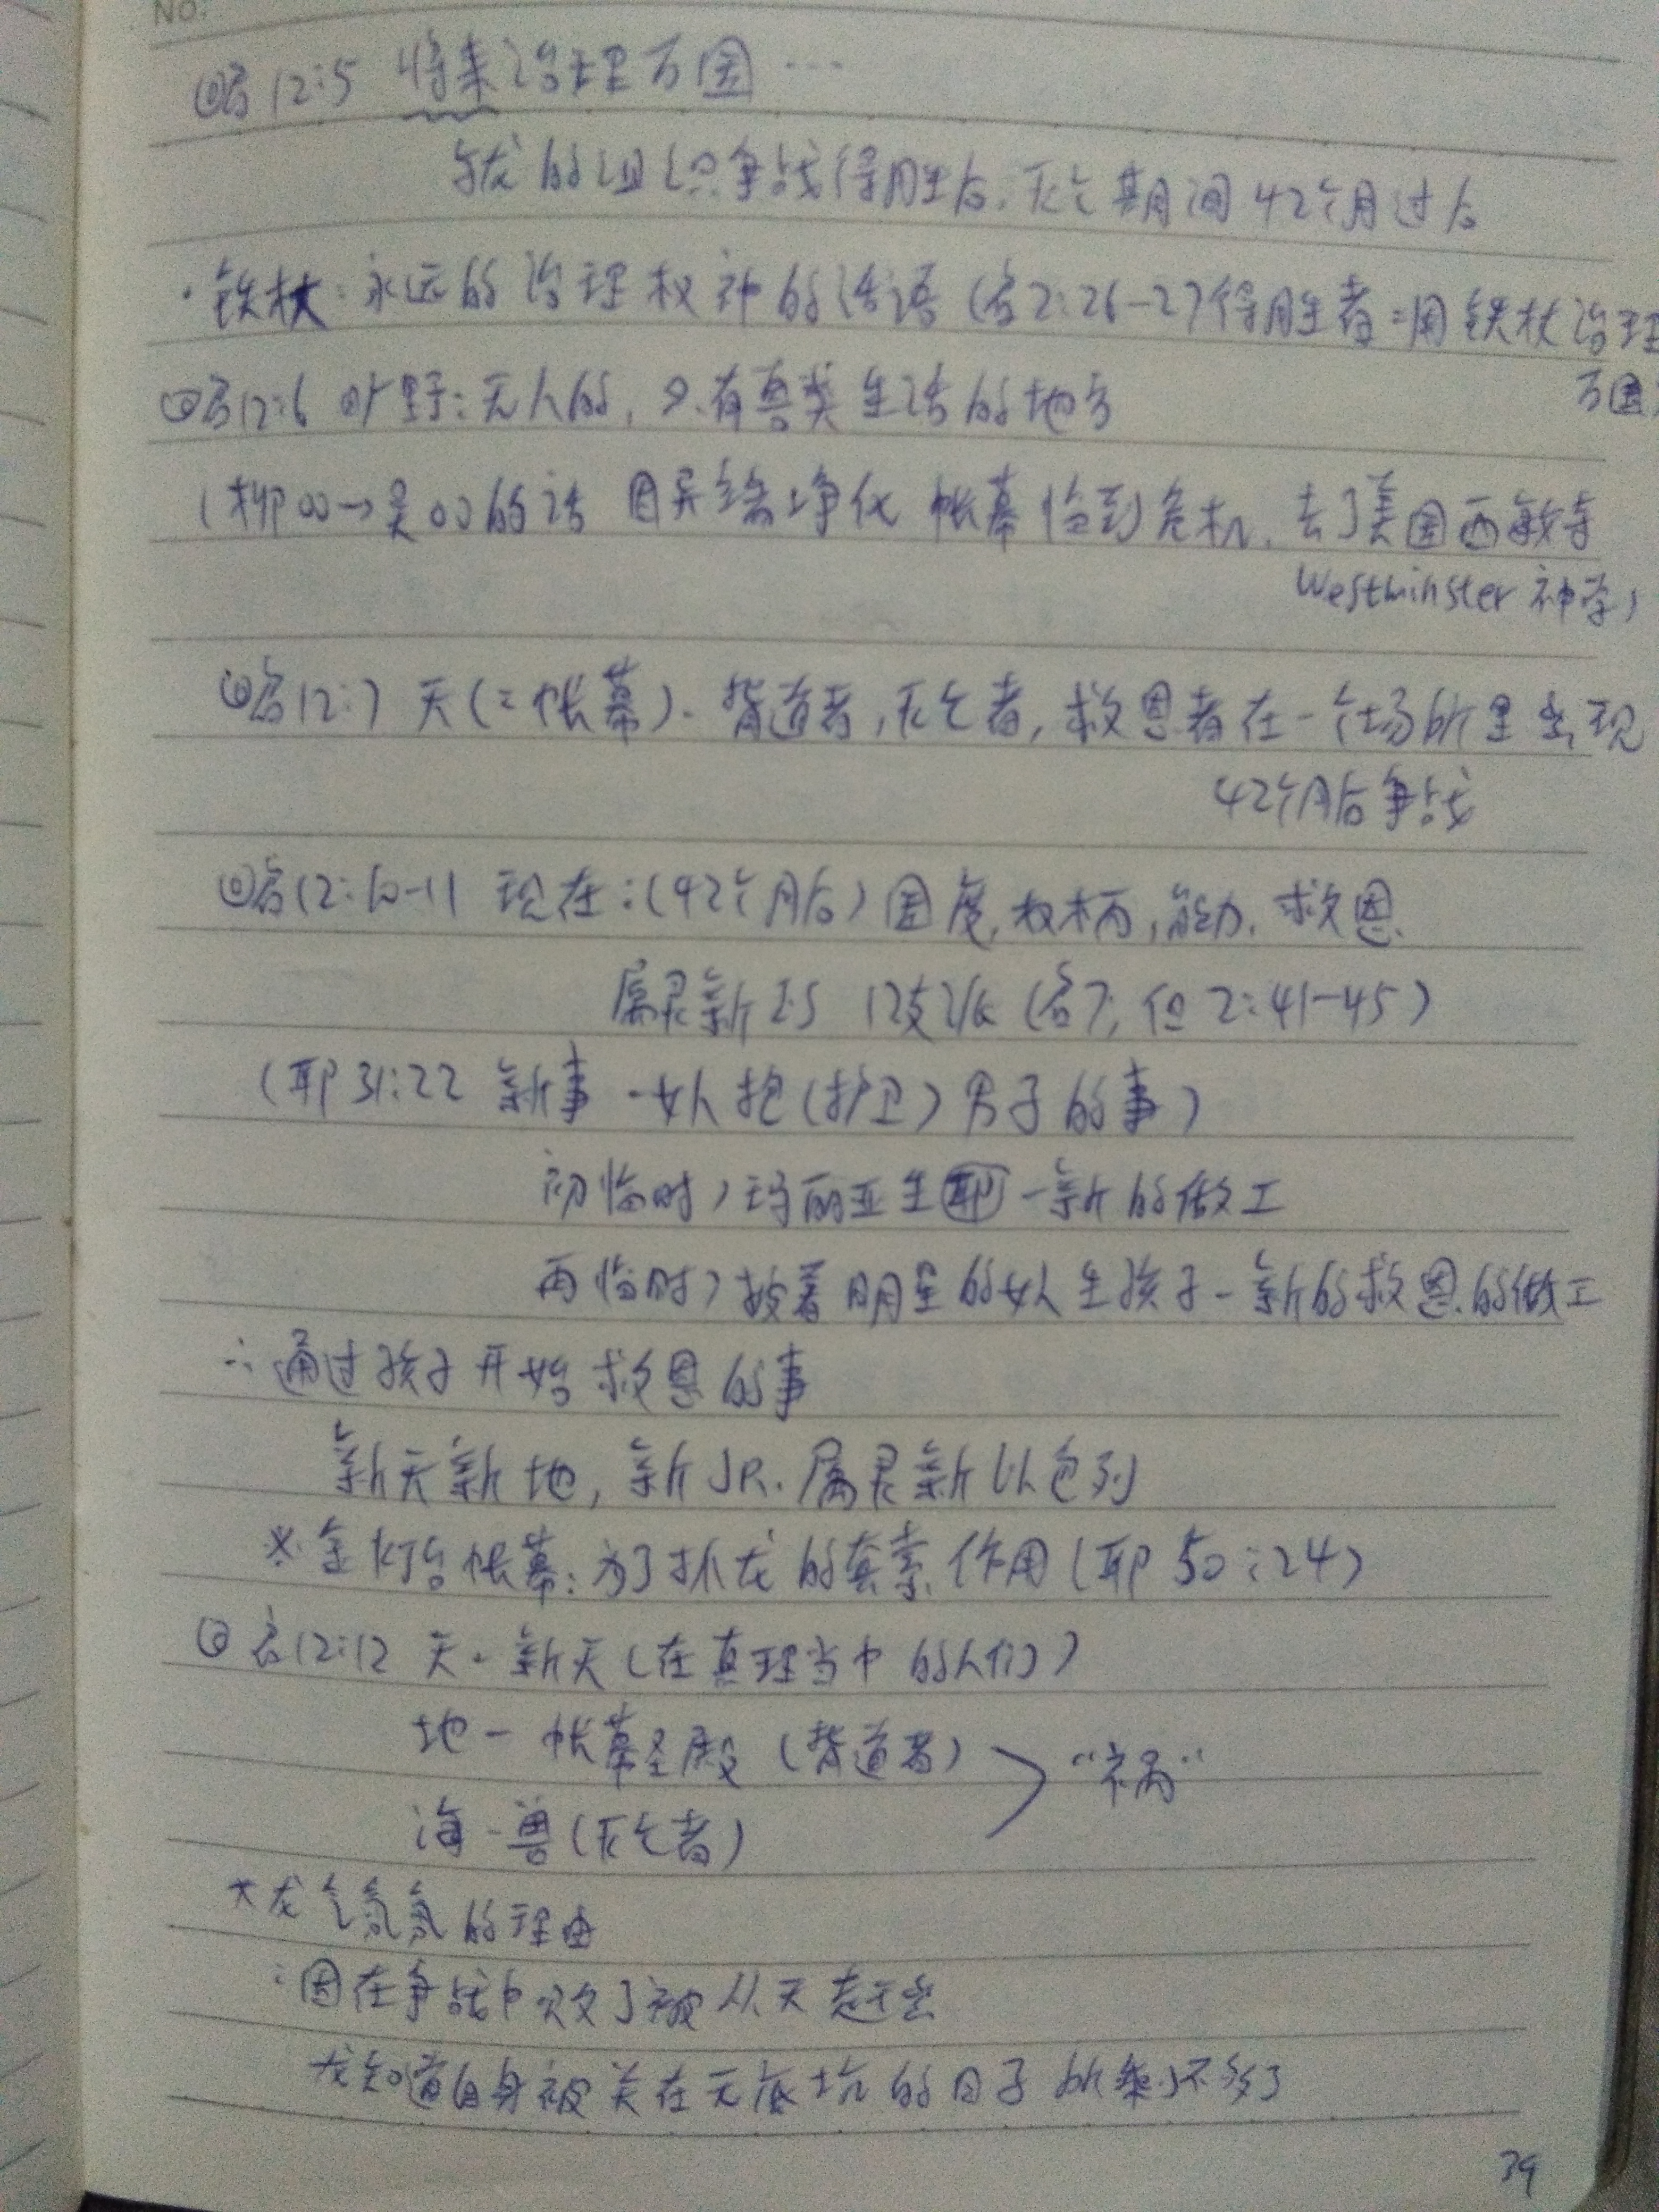 No.
◎启12:5 将来治理万国 …
与龙的组织争战得胜后, 灭亡期间42个月过后
·铁杖: 永远的治理权 神的话语 (启2:26-27 得胜者=用铁杖治理
万国)
◎启12:6 旷野: 无人的, 只有兽类生活的地方
(柳○○→吴○○的话 因异端净化 帐幕临到危机, 去了美国西敏寺
Westminster 神学)
◎启12:7 天(=帐幕). 背道者, 灭亡者, 救恩者在一个场所里出现
42个月后争战
◎启12:10-11 现在:(42个月后) 国度, 权柄, 能力, 救恩.
属灵新IS 12支派 (启7, 但2:41-45)
(耶31:22 新事 - 女人抱(护卫) 男子的事)
初临时) 玛丽亚生耶 - 新的做工
再临时) 披着明星的女人生孩子 - 新的救恩的做工
∴通过孩子开始救恩的事
新天新地, 新JR. 属灵新以色列
※金灯台帐幕: 为了抓龙的套索作用 (耶50:24)
◎启12:12 天 - 新天 (在真理当中的人们)
地 - 帐幕圣殿 (背道者)
"祸"
海 - 兽 (灭亡者)
*龙气氛氛的理由
: 因在争战中败了被从天赶出
龙知道自身被关在无底坑的日子所剩不多了
39